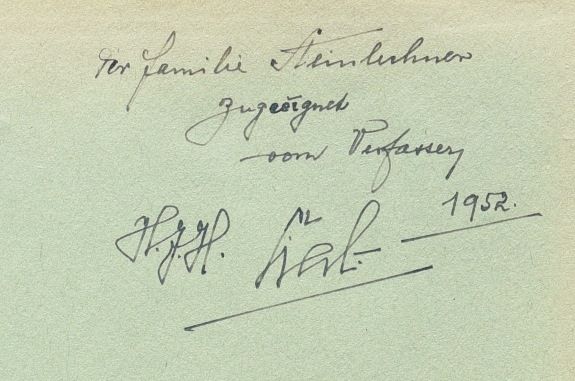 Der Familie Steinlechner
zugeeignet
vom Verfasser,
H.J.H.
1952.